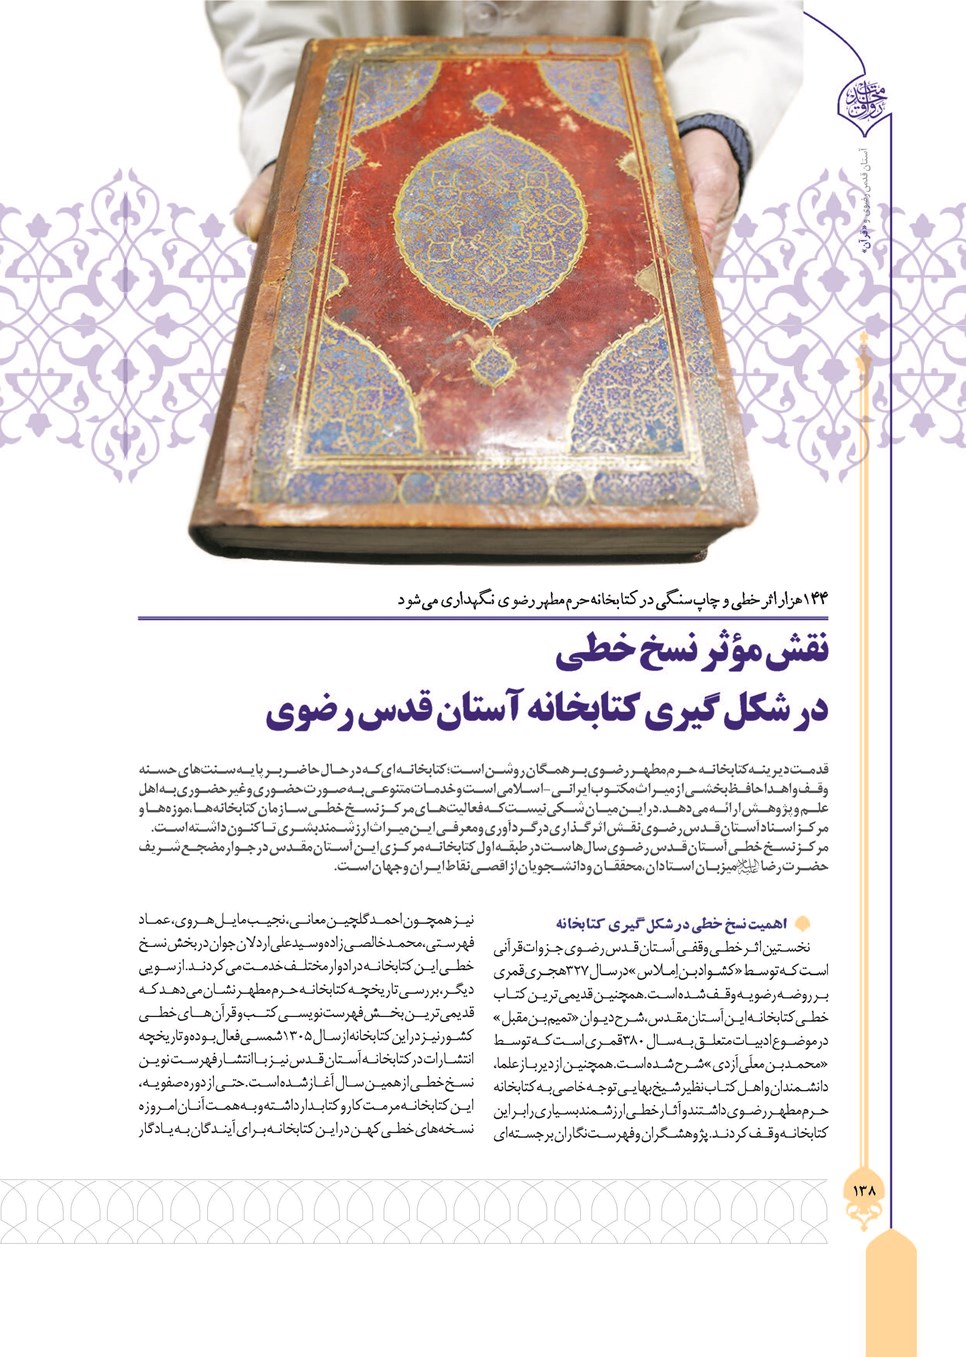 آستان قدس رضوی و «قرآن»
۱۴۴هزار اثر خطی و چاپ سنگی در کتابخانه حرم مطهر رضوی نگهداری می‌شود
نقش مؤثر نسخ خطی
در شکل گیری کتابخانه آستان قدس رضوی
قدمت دیرینه کتابخانه حرم مطهر رضوی بر همگان روشن است؛ کتابخانه‌ای که در حال حاضر بر پایه سنت‌های حسنه
وقف و اهدا حافظ بخشی از میراث مکتوب ایرانی-اسلامی است و خدمات متنوعی به صورت حضوری و غیر حضوری به اهل
علم و پژوهش ارائه می‌دهد. در این میان شکی نیست که فعالیت‌های مرکز نسخ خطی سازمان کتابخانه‌ها، موزه‌ها و
مرکز اسناد آستان قدس رضوی نقش اثرگذاری در گردآوری و معرفی این میراث ارزشمند بشری تاکنون داشته است.
مرکز نسخ خطی آستان قدس رضوی سال‌هاست در طبقه اول کتابخانه مرکزی این آستان مقدس در جوار مضجع شریف
حضرت رضا علیه‌السلام میزبان استادان، محققان و دانشجویان از اقصی نقاط ایران و جهان است.
اهمیت نسخ خطی در شکل گیری کتابخانه
نخستین اثر خطی وقفی آستان قدس رضوی جزوات قرآنی
است که توسط «کشواد بن اِملاس» در سال ۳۲۷هجری قمری
بر روضه رضویه وقف شده است. همچنین قدیمی ترین کتاب
خطی کتابخانه این آستان مقدس، شرح دیوان «تمیم بن مقبل»
در موضوع ادبیات متعلق به سال ۳۸۰قمری است که توسط
«محمد بن معلّی اَزدی» شرح شده است. همچنین از دیرباز علما،
دانشمندان و اهل کتاب نظیر شیخ بهایی توجه خاصی به کتابخانه
حرم مطهر رضوی داشتند و آثار خطی ارزشمند بسیاری را بر این
کتابخانه وقف کردند. پژوهشگران و فهرست نگاران برجسته‌ای
نیز همچون احمد گلچین معانی، نجیب مایل هروی، عماد
فهرستی، محمد خالصی زاده و سید علی اردلان جوان در بخش نسخ
خطی این کتابخانه در ادوار مختلف خدمت می کردند. از سویی
دیگر، بررسی تاریخچه کتابخانه حرم مطهر نشان می‌دهد که
قدیمی ترین بخش فهرست نویسی کتب و قرآن های خطی
کشور نیز در این کتابخانه از سال ۱۳۰۵شمسی فعال بوده و تاریخچه
انتشارات در کتابخانه آستان قدس نیز با انتشار فهرست نوین
نسخ خطی از همین سال آغاز شده است. حتی از دوره صفویه،
این کتابخانه مرمت کار و کتابدار داشته و به همت آنان امروزه
نسخه‌های خطی کهن در این کتابخانه برای آیندگان به یادگار
۱۳۸